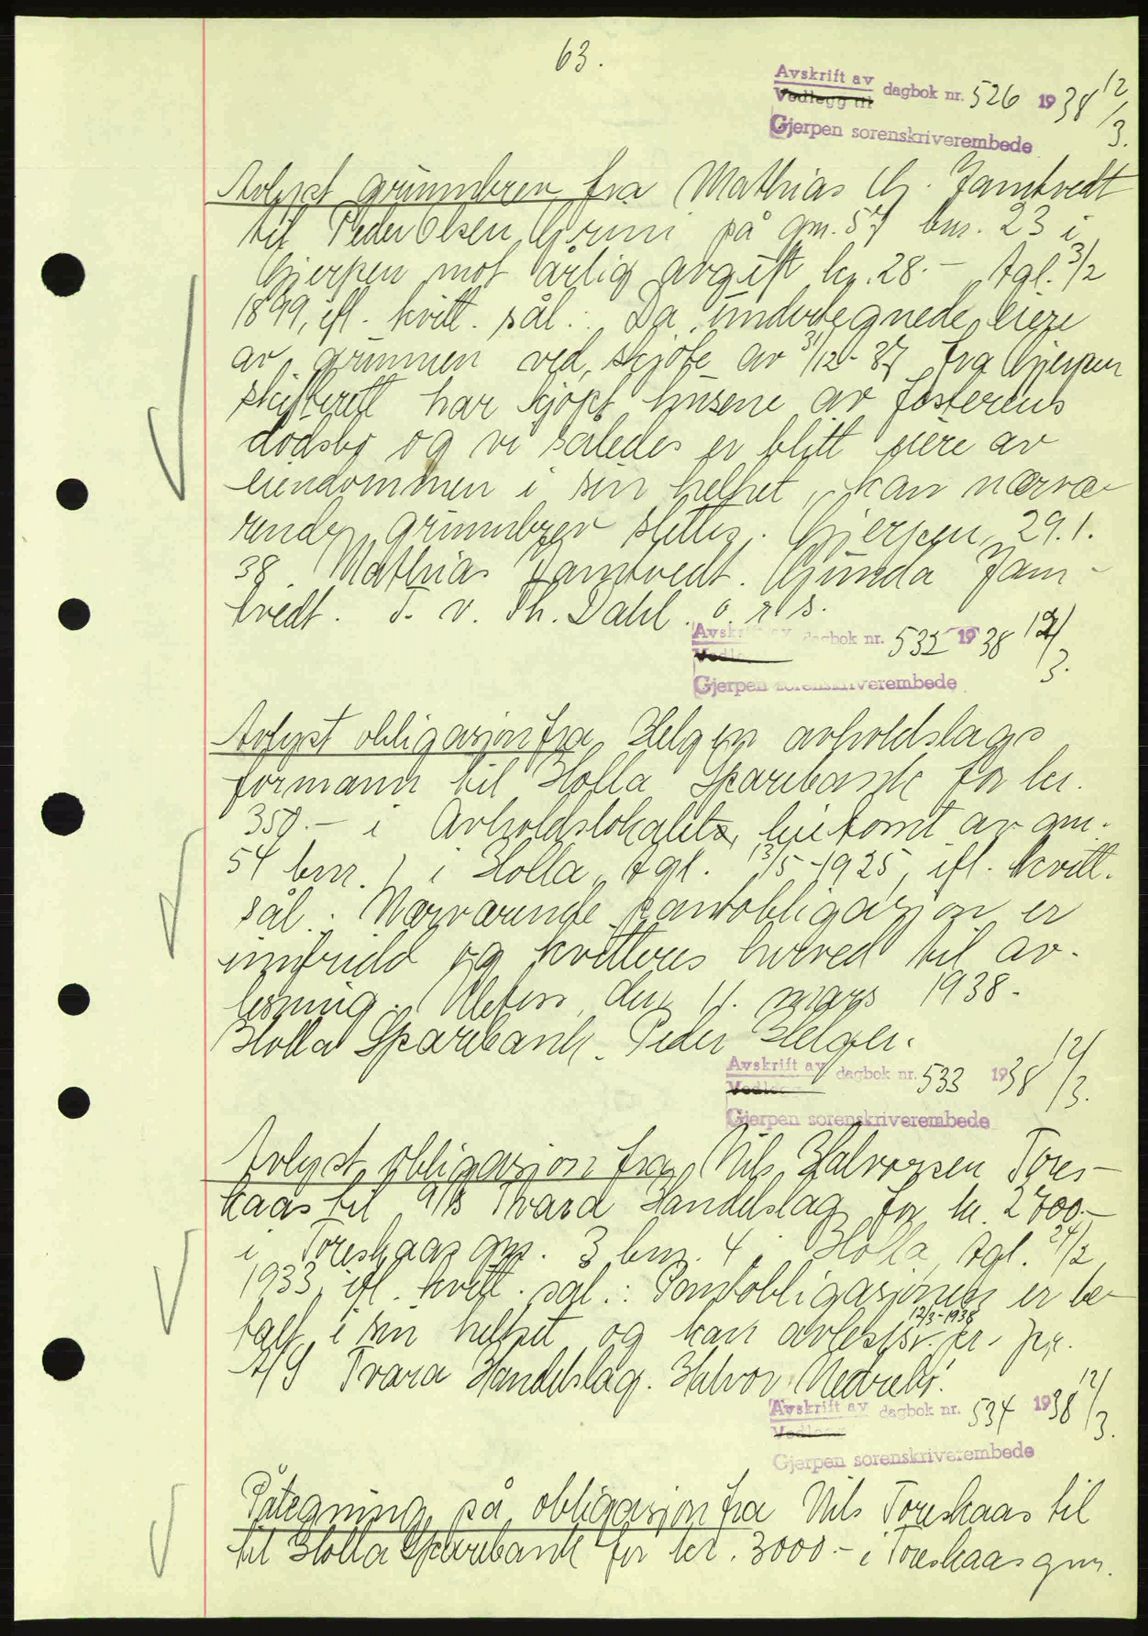 63.
Avskrift av dagbok nr. 526 1938 12/3.
Vedlegg til
Gjerpen sorenskriverembede
Avlyst grunnbrev fra Mathias Chr. Jamtvedt
til Peder Olsen Grini på gnr. 57 bnr. 23 i
Gjerpen mot årlig avgift kr. 28.- tgl. 3/2
1899, ifl. kvitt. sål.: Da undertegnede eiere
av grunnen ved skjøte av 31/12-37 fra Gjerpen
skifterett har kjøpt husene av festerens
dødsbo og vi således er blitt eiere av
eiendommen i sin helhet, kan nærvæ-
rende grunnbrev slettes. Gjerpen 29.1.
38. Mathias Jamtvedt. Gunda Jam-
tvedt. T. v. Th. Dahl. o. r. s.
Avskrift av dagbok nr. 532 1938 12/3.
Vedlegg
Gjerpen sorenskriverembede
Avlyst obligasjon fra Helgen avholdslags
formann til Holla Sparebank for kr.
350.- i Avholdslokalet, beliggende av gnr.
54 bnr. 1 i Holla, tgl. 13/5-1925, ifl. kvitt.
sål.: Nærværende pantobligasjon er
innfridd og kvitteres herved til av-
lesning. Ulefoss, den 4. mars 1938.
Holla Sparebank. Peder Helgen.
Avskrift av dagbok nr. 533 1938 12/3.
Vedlegg
Gjerpen sorenskriverembede
Avlyst obligasjon fra Nils Halvorsen Tores-
haas til A/S Tvara Handelslag for kr. 2700.-
i Toreshaas gnr. 3 bnr. 4 i Holla, tgl. 24/2
1933, ifl. kvitt. sål.: Pantobligasjonen er be-
talt i sin helhet og kan avleses. 12/3-1938 pr. pr.
A/S Tvara Handelslag. Halvor Nedrebø.
Avskrift av dagbok nr. 534 1938 12/3.
Vedlegg
Gjerpen sorenskriverembede
Påtegning på obligasjon fra Nils Toreshaas til
til Holla Sparebank for kr. 3000.- i Toreshaas gnr.